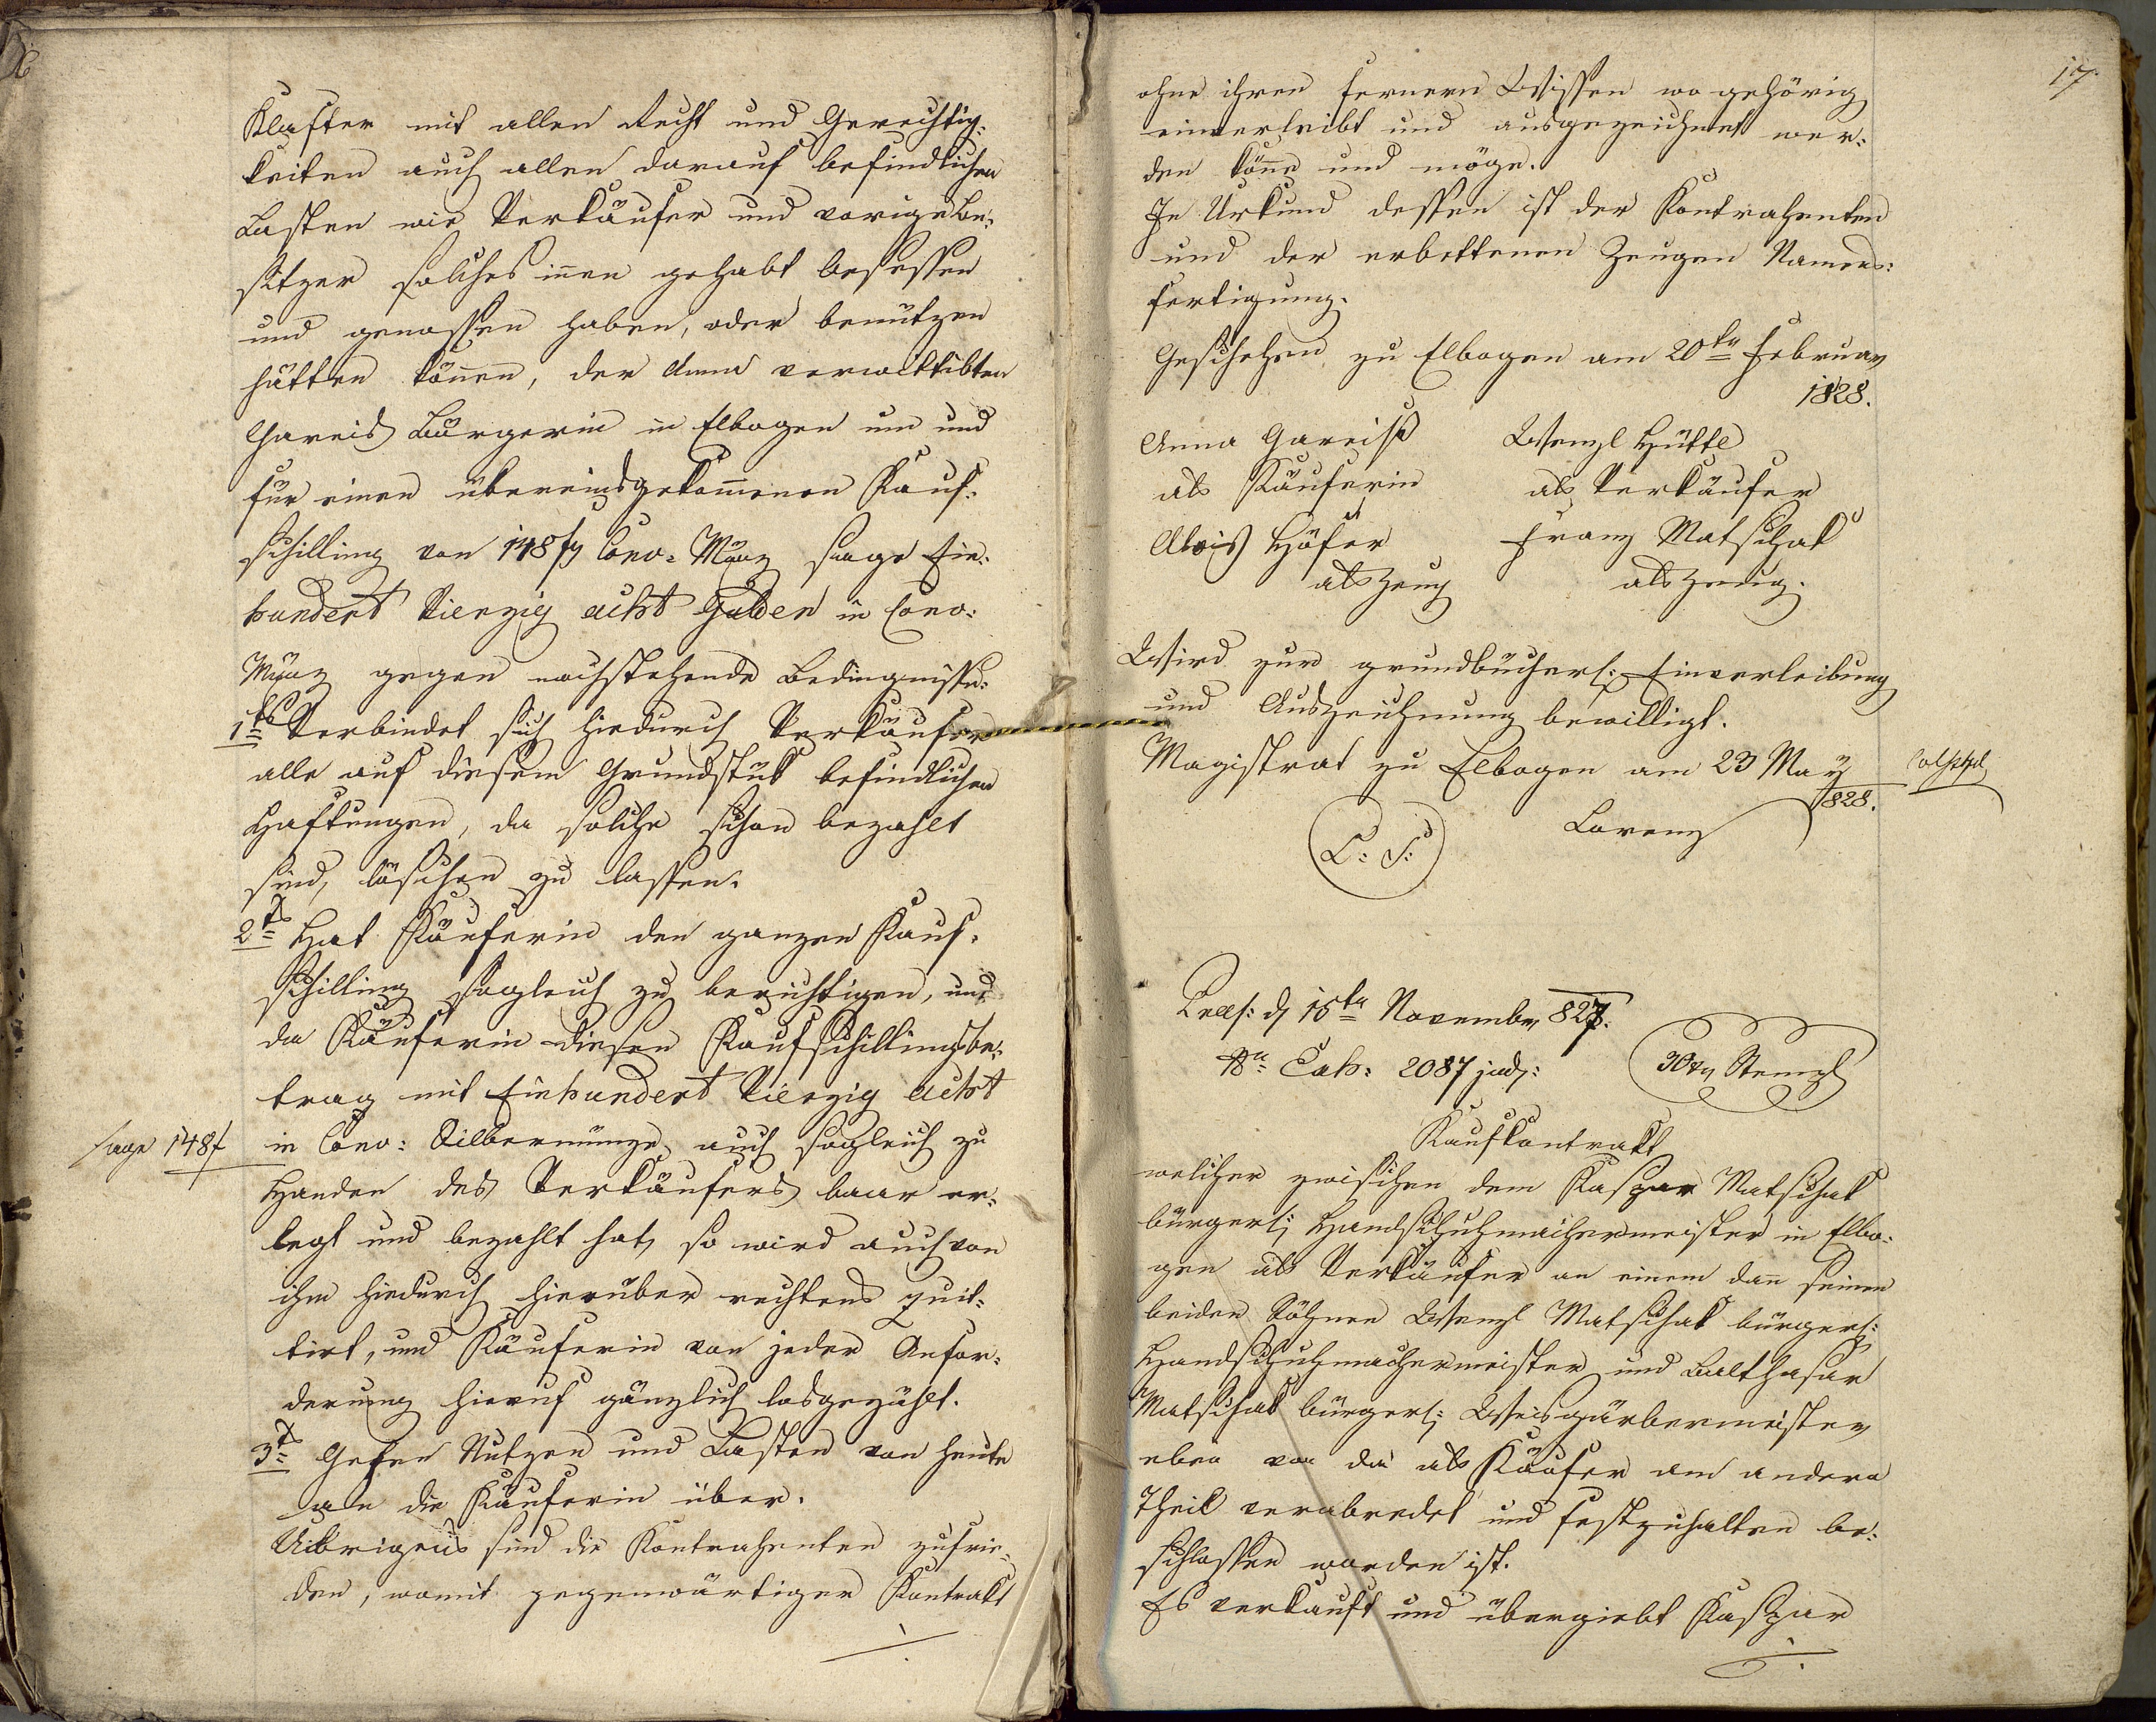 Klafter mit allen Recht und Gerechtig:
keiten auch allen darauf befindlichen
Lasten wie Verkäufer und vorige Be:
sitzer solches innen gehabt besessen
und genossen haben, oder benützen
hätten können, der Anna verwittibten
Gareis Bürgerin in Elbogen um und
für einen übereinsgekom̅enen Kauf:
schilling von 148 f Conv: Münz sage Ein:
hundert Vierzig acht Gulden in Conv:
Münz gegen nachstehende Bedingnisse:
1tens Verbindet sich hiedurch Verkäufer
alle auf diesem Grundstük befindlichen
Haftungen, da solche schon bezahlt
sind, löschen zu lassen.
2tens Hat Käuferin den ganzen Kauf:
schilling sogleich zu berichtigen, und
da Käuferin diesen Kaufschillingsbe:
trag mit Einhundert Vierzig acht
sage 148 f
in Conv: Silbermünze auch sogleich zu
Handen des Verkäufers baar er:
legt und bezahlt hat, so wird auch von
ihm hiedurch hierüber rechtens quit:
tirt, und Käuferin von jeder Anfor:
derung hierauf gänzlich losgezählt.
3tens Gehen Nutzen und Lasten von heute
an die Käuferin über.
Uibrigens sind die Kontrahenten zufrie:
den, womit gegenwärtiger Kontrakt
./.
17.
ohne ihren fernern Wissen wo gehörig
einverleibt und ausgezeichnet wer:
den kön̅e und möge.
In Urkund dessen ist der Kontrahenten
und der erbettenen Zeugen Namens:
fertigung.
Geschehen zu Elbogen am 20ten Februar
1828.
Anna Gareiß Wenzl Hüttl
als Käuferin als Verkäufer
Alois Höfer Franz Matschak
als Zeug als Zeug.
Wird zur grundbücherl: Einverleibung
und Auszeichnung bewilligt.
Magistrat zu Elbogen am 23 May
828.
Lorenz
L: S:
Präs: d 15ten November 827.
Nro Exh: 2087 jud:
30 xr Stempl
Kaufkontrakt
welcher zwischen dem Kaspar Matschak
bürgerl: Handschuhmachermeister in Elbo:
gen als Verkäufer an einem dan̅ seinen
beiden Söhnen Wenzl Matschak bürgerl:
Handschuhmachermeister und Balthasar
Matschak bürgerl: Weisgärbermeister
eben von da als Käufer am andern
Theil verabredet und festzuhalten be:
schlossen worden ist.
Es verkauft und übergiebt Kaspar
./.